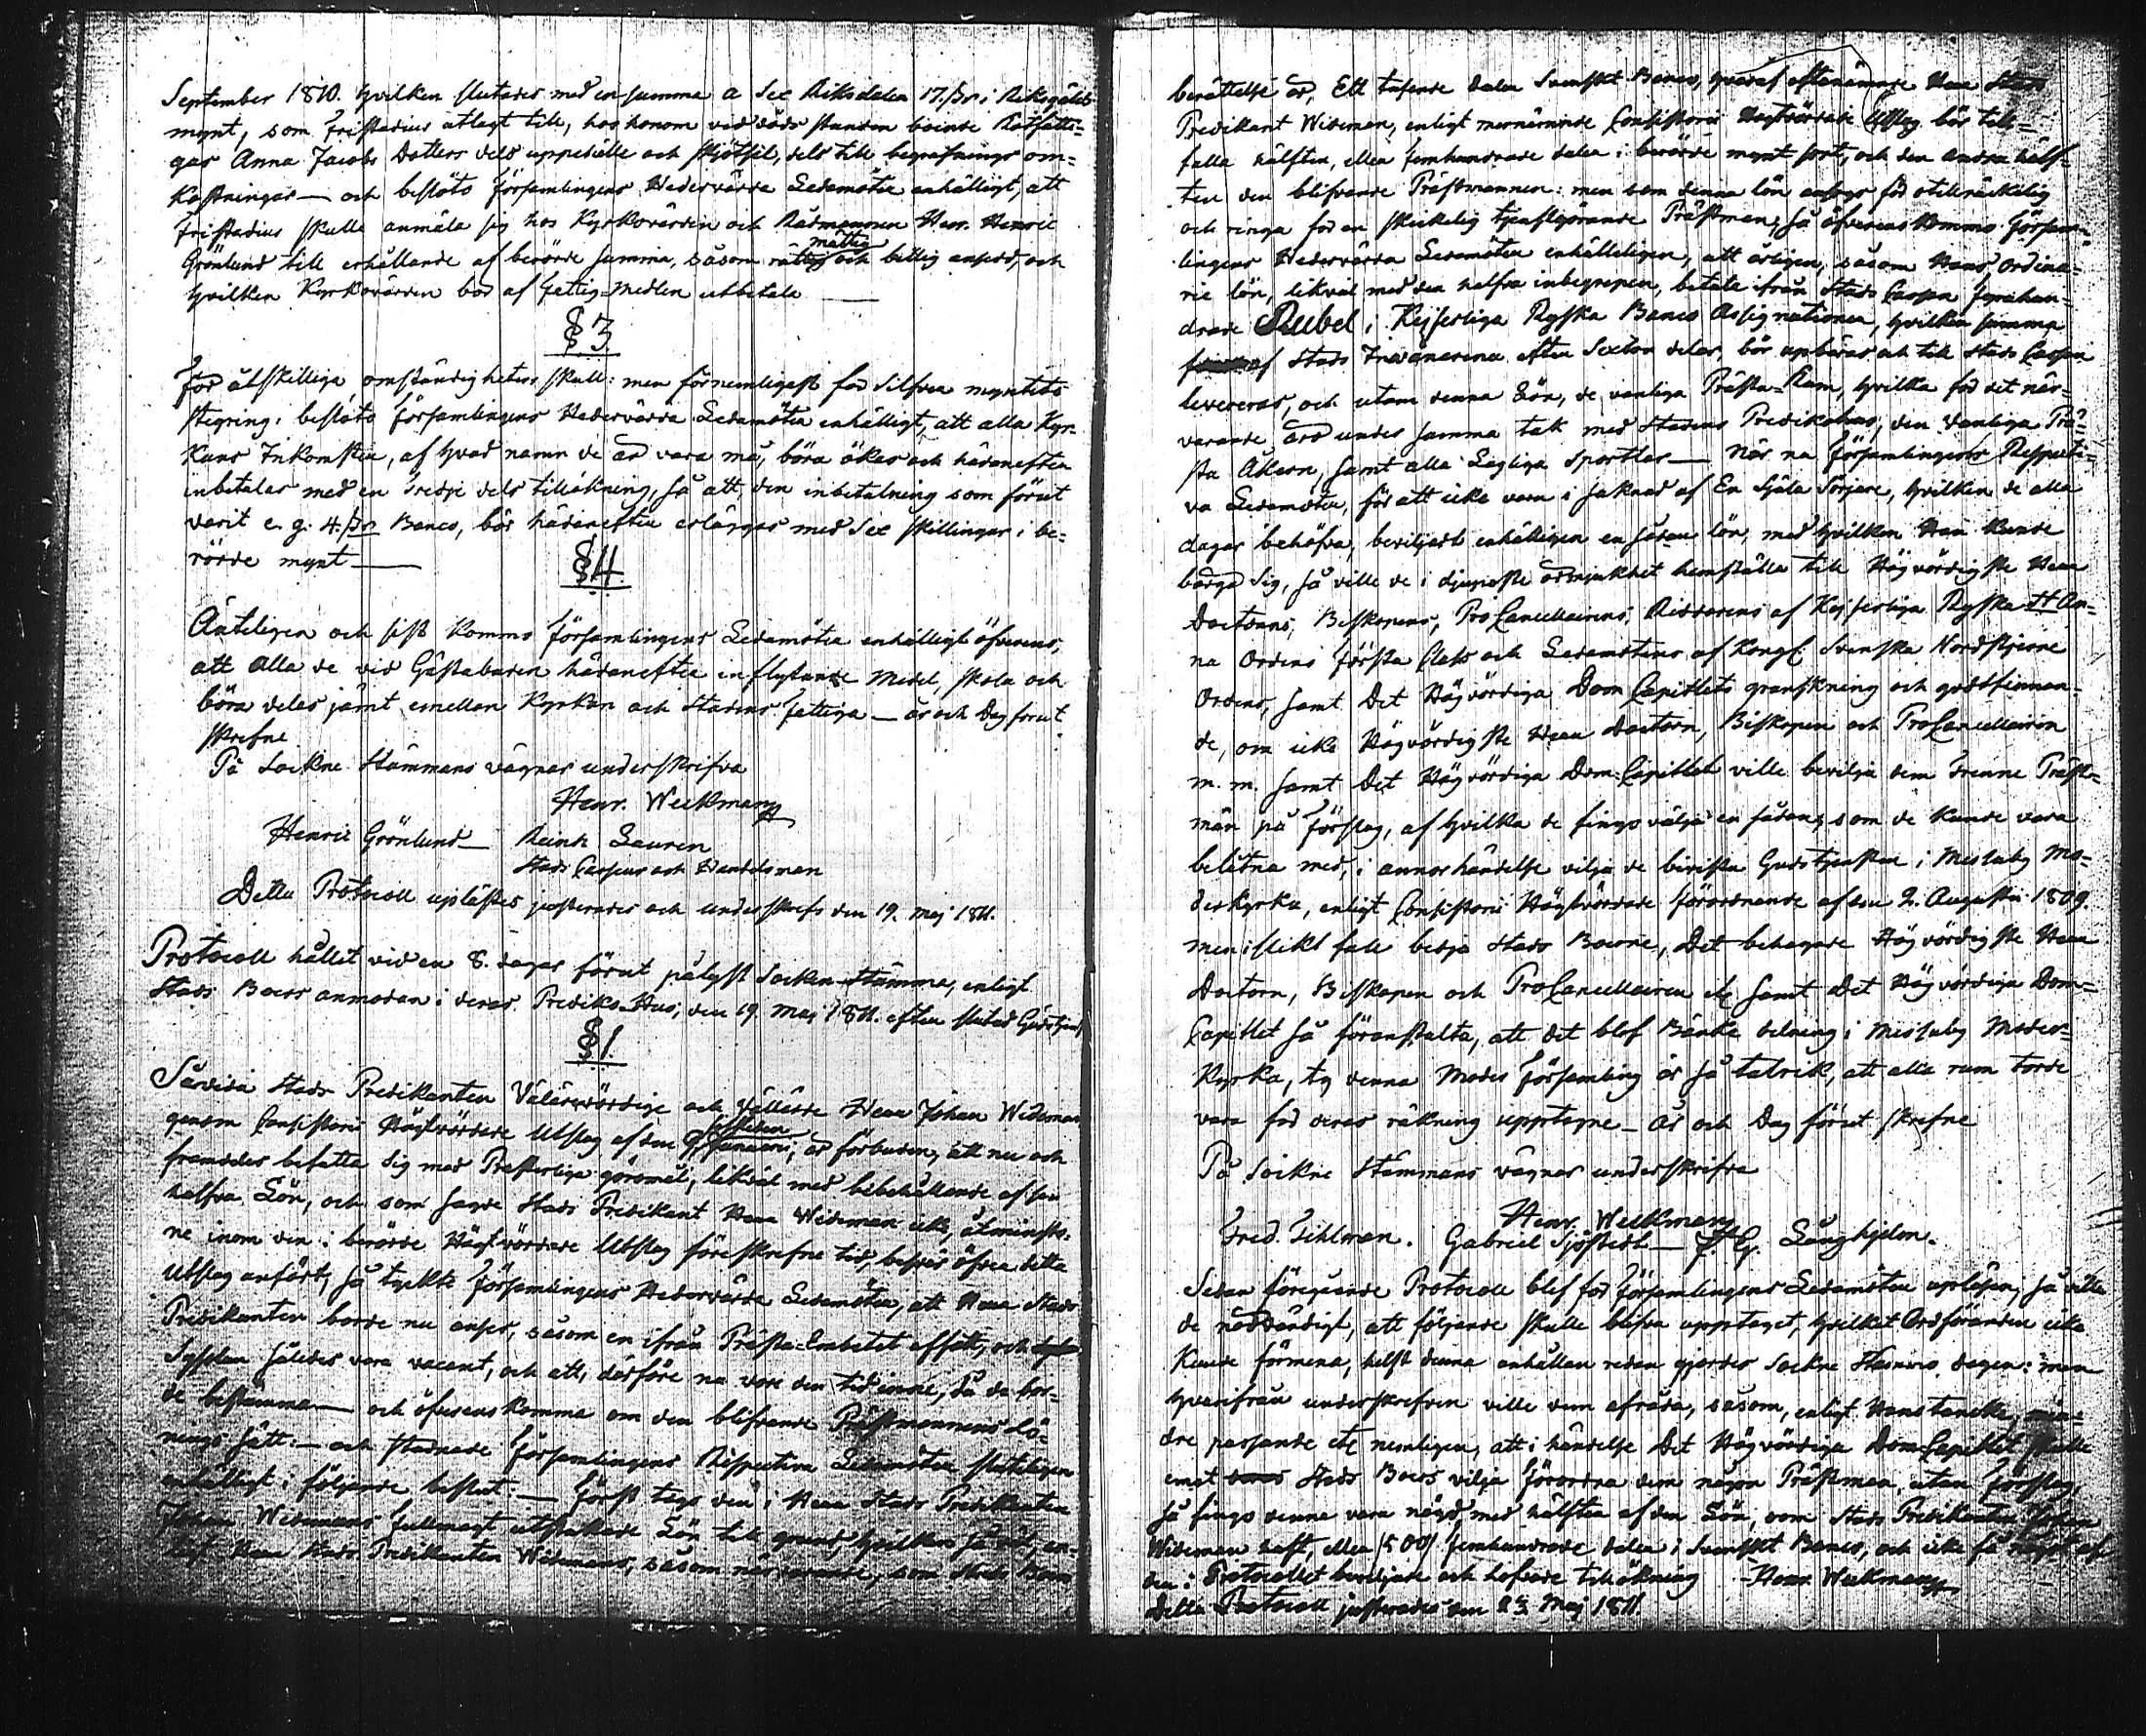 September 1810. hvilken slutades med en summa a Sex Riksdaler 17. ßr i Riksgälds
mynt, som Fristadius utlagt till, hos honom vid döds stunden boende Rotfatti-
gas Anna Jacobs Dotters dels uppehälle och skjötsel, dels till begrafnings om-
kostningar — och beslöts Församlingens Hedervärda Ledamöter enhälligt, att
Fristadius skulle anmäla sig hos Kyrkovärden och Rådmannen Herr Henric
Grönlund till erhållande af berörde summa, såsom måttlig och billig ansedd, och
hvilken Kyrkovärden bör af Fattig-Medlen utbetala —
§ 3
För åtskilliga omständigheters skull: men förnemligast för Silfver myntets
stegring: beslöts Församlingens Hedervärda Ledamöter enhälligt, att alla Kyr-
kans Inkomster, af hvad namn de är vara må, böra ökas och hädanefter
inbetalas med en tredje dels tillökning, så att den inbetalning som förut
varit e. g. 4 ßr Banco, bör hädanefter erläggas med Sex skillingar i be-
rörde mynt —
§ 4.
Äntligen och sist kommo Församlingens Ledamöter enhälligt öfverens,
att Alla de vid Gästabuden hädanefter inflytande Medel, skola och
böra delas jämt emellan Kyrkan och Stadens fattiga — år och Dag förut
skrefne
På Sockne Stämmans vägnar underskrifva
Henr. Weckman
Henric Grönlund — Reinh Lauren
Stads Casseur och Handelsman
Detta Protocoll uplästes justerades och underskrefs den 19. Maj 1811.
Protocoll hållit vid en 8. dagar förut pålyst Socken-stämma, enligt
Stads Boers anmodan i deras Prediko-Hus, den 19. Maj 1811. efter slutad Gudstjenst
§ 1.
Såvida Stads Predikanten Välärevördige och Vällärde Herr Johan Wideman
genom Consistorii Högtvördade Utslag af den Januarii, är förbuden, att nu och
framdeles befatta sig med Prästerliga göromål, likväl med bibehållande af sin
halfva Lön, och som sagde Stads Predikant Herr Wideman icke, åtminsto-
ne inom den i berörde Högtvördade Utslag föreskrefne tid, besvär öfver detta
Utslag anfört, så tyckte Församlingens Hedervärda Ledamöter, att Herr Stads
Predikanten borde nu anses, såsom en ifrån Prästa-Embetet afsatt, och
Sysslan således vara vacant, och att, därföre nu vore den tid inne, då de bor-
de bestämma — och öfverenskomma om den blifvande Prästmannens lö-
nings sätt: — och stadnade Församlingens Respective Ledamöter sluteligen
enhälligt i följande beslut: — Först togs den i Herr Stads Predikanten
Johan Widemans fullmagt utstakade Lön till grund, hvilken
Herr Stads Predikanten Widemans, såsom närvarande, som Stads Boers
berättelse är, Ett tusende daler Svenskt Banco, hvaraf oftenämnde Herr Stads
Predikant Wideman, enligt mernämnde Consistorii Högtvördade Utslag bör till-
falla hälften, eller femhundrade daler i berörde mynt sort, och den andra hälf-
ten den blifvande Prästmannen: men som denna lön ansågs för otilräckelig
och ringa för en skickelig tjenstgörande Prästman, så öfverenskommo Försam-
lingens Hedervärda Ledamöter enhälleligen, att årligen, såsom Hans ordina-
rie lön, likväl med den halfva inbegripen, betala ifrån Stads Cassan
drade Rubel i Kejserliga Ryska Banco Assignationer, hvilken summa
af Stads Invånarena efter Sexton delar, bör upbäras och till Stads Cassan
levereras, och utom denna Lön, de vanliga Prästa-Rum, hvilka för det när-
varande äro under samma tak med Stadens Predikohus, den vanliga Prä-
sta Åkern, samt alla Lagliga Sportler — När nu Församlingens Respecti-
va Ledamöter, för att icke vara i saknad af En Själa Sörjare, hvilken de alla
dagar behöfva, beviljat enhälligen en sådan lön, med hvilken Han kunde
bärga Sig, så ville de i djupaste ödmjukhet hemställa till Högvördigste Herr
Doctorns, Biskopens, ProCancellairens, Riddarens af Kejserliga Ryska St An-
na Ordens första Class och Ledamotens af Kongl. Svenska Nordstjerne
Ordens, samt Det Högvördiga Dom Capitlets granskning och godtfinnan-
de, om icke Högvördigste Herr Doctorn, Biskopen och ProCancellairen
m. m. samt Det Högvördiga Dom-Capitlet ville bevilja dem trenne Präst-
män på Förslag, af hvilka de fingo välja en sådan, som de kunde vara
belåtna med, i annor händelse vilja de bivista Gudstjensten i Messuby Mo-
derkyrka, enligt Consistorii Högtvördade förordnande af den 2. Augusti 1809.
men i slikt fall bedja Stads Boerne, Det behagade Högvördigste Herr
Doctorn, Biskopen och ProCancellairen etc samt Det Högvördiga Dom-
Capitlet så föranstalta, att det blef Bänke delning i Messuby Moder-
Kyrka, ty denna Moder Församling är så talrik, att alla rum torde
vara för deras räkning upptagne — År och Dag förut skrefne
På Sockne Stämmans vägnar underskrifva
Henr. Weckman
Fred. Tihlman. Gabriel Sjöstedt — F. G. Langhjelm.
Sedan föregående Protocoll blef för Församlingens Ledamöter upläsen, så ville
de nödvändigt, att följande skulle blifva upptaget, hvilket Ordföranden icke
kunde förmena, helst denna anhållan redan gjordes Sockne Stämmo dagen: men
hvarifrån underskrefven ville dem afråda, såsom, enligt Hans tancke, min-
dre passande etc nemligen, att i händelse Det Högvördiga Dom-Capitlet skulle
emot Stads Boers vilja förordna dem någon Prästman, utan Förslag,
så fingo denne vara nögd med hälften af den Lön, som Stads Predikanten Johan
Wideman haft, eller (500) femhundrade daler i Svenskt Banco, och icke få något af
den i Protocollet beviljade och lofvade tillökning — Henr. Weckman
Detta Protocoll justerades den 23. Maj 1811.